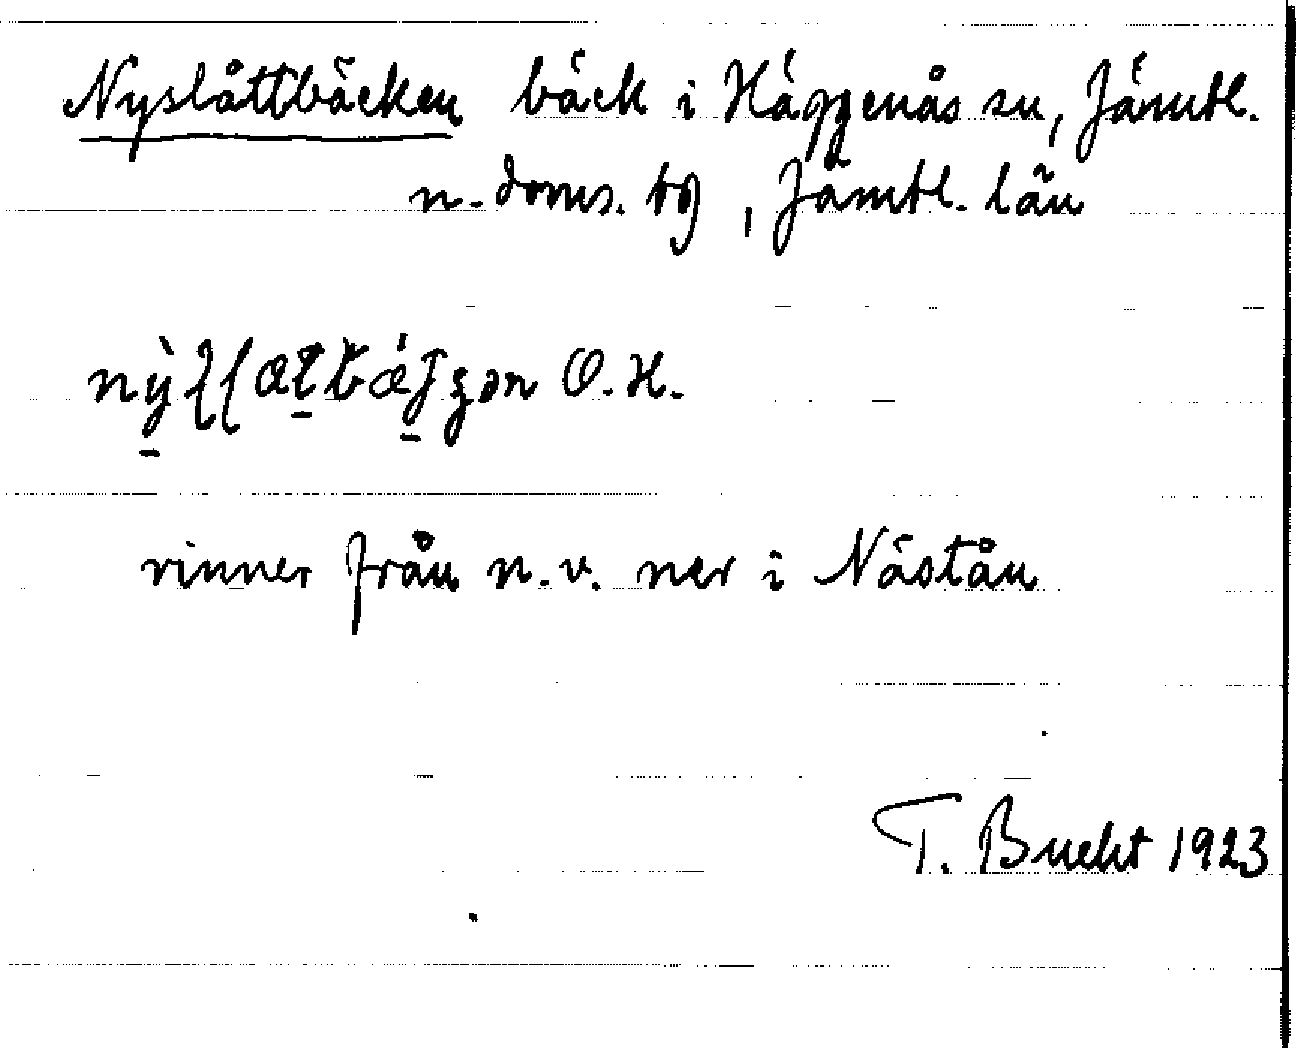 Nyslåttbäcken bäck i Häggenås sn, Jämtl.
n. doms. tg, Jämtl. län
O. H.
rinner från n. v. ner i Nästån
T. Bucht 1923